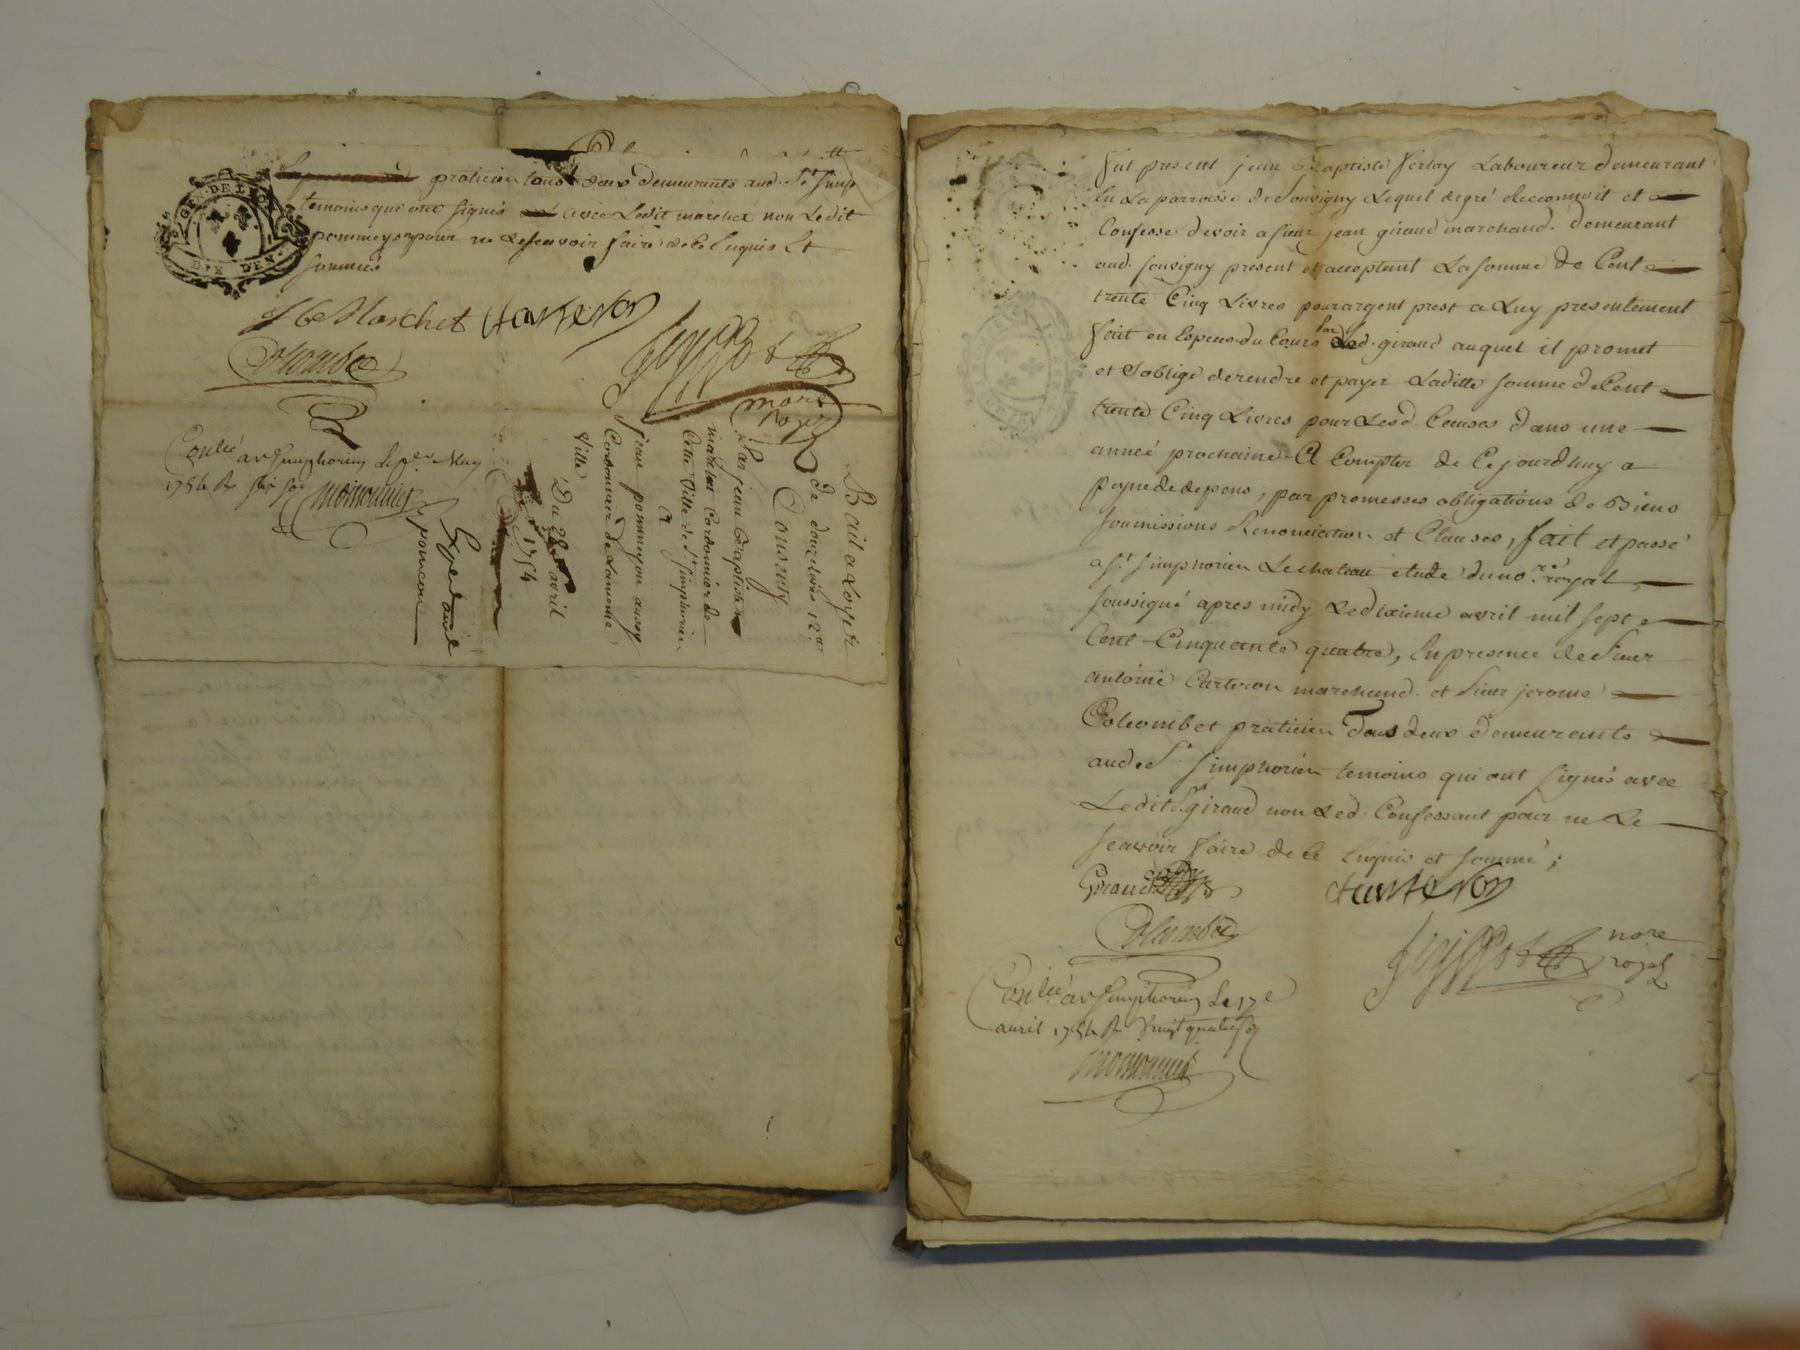 praticien tous deux demeurants aud. St. Simp
temoins qui ont signés avec Ledit marchet non Ledit
pommeyon pour ne Le scavoir faire de ce Enquis Et
sommés
GE. DE LYON
DIX DEN
Marchet Carteron
Colombet
nore
royal
Conllé a st Simphorien Le per May
1754 Rx six sos
moissonnier
Bail a Loyer
de douze Livres 12 ll
Consenty
Par jean Baptiste
marchet Cordonnier de
Cette Ville de St. Simphorien
A
jean pommeyon aussy
Cordonnier de Lamesme
Ville
Du 28 avril
1754
Expedané
Fut present jean Baptiste ferlay Laboureur demeurant
En La parroisse de Souvigny Lequel de gré a reconnu et
Confesse devoir a sieur jean giraud marchand demeurant
aud. souvigny present et acceptant La somme de Cent
trente Cinq Livres pour argent prest a Luy presentement
fait en Especes du Cours par Led. giraud auquel il promet
et s'oblige de rendre et payer Laditte somme de Cent
trente Cinq Livres pour Lesd. Causes dans une
année prochaine A Compter de Ce jourd'huy a
peyne de depens, par promesses obligations de Biens
soumissions Renonciation et Clauses, fait et passé
a St. simphorien Le chateau etude du nore. royal
soussigné apres midy Le dixieme avril mil sept
Cent Cinquante quatre, En presence de Sieur
antoine Carteron marchand et Sieur jerome
Colcombet praticien Tous deux demeurants
aud. St. simphorien temoins qui ont signés avec
Ledit Sr. giraud non Led. Confessant pour ne Le
scavoir faire de Ce Enquis et sommé ;
Giraud Carteron
Colombet
nore
royal
Conllé a st Simphorien Le 17e
avril 1754 Rx Vingt quatre sos
moissonnier